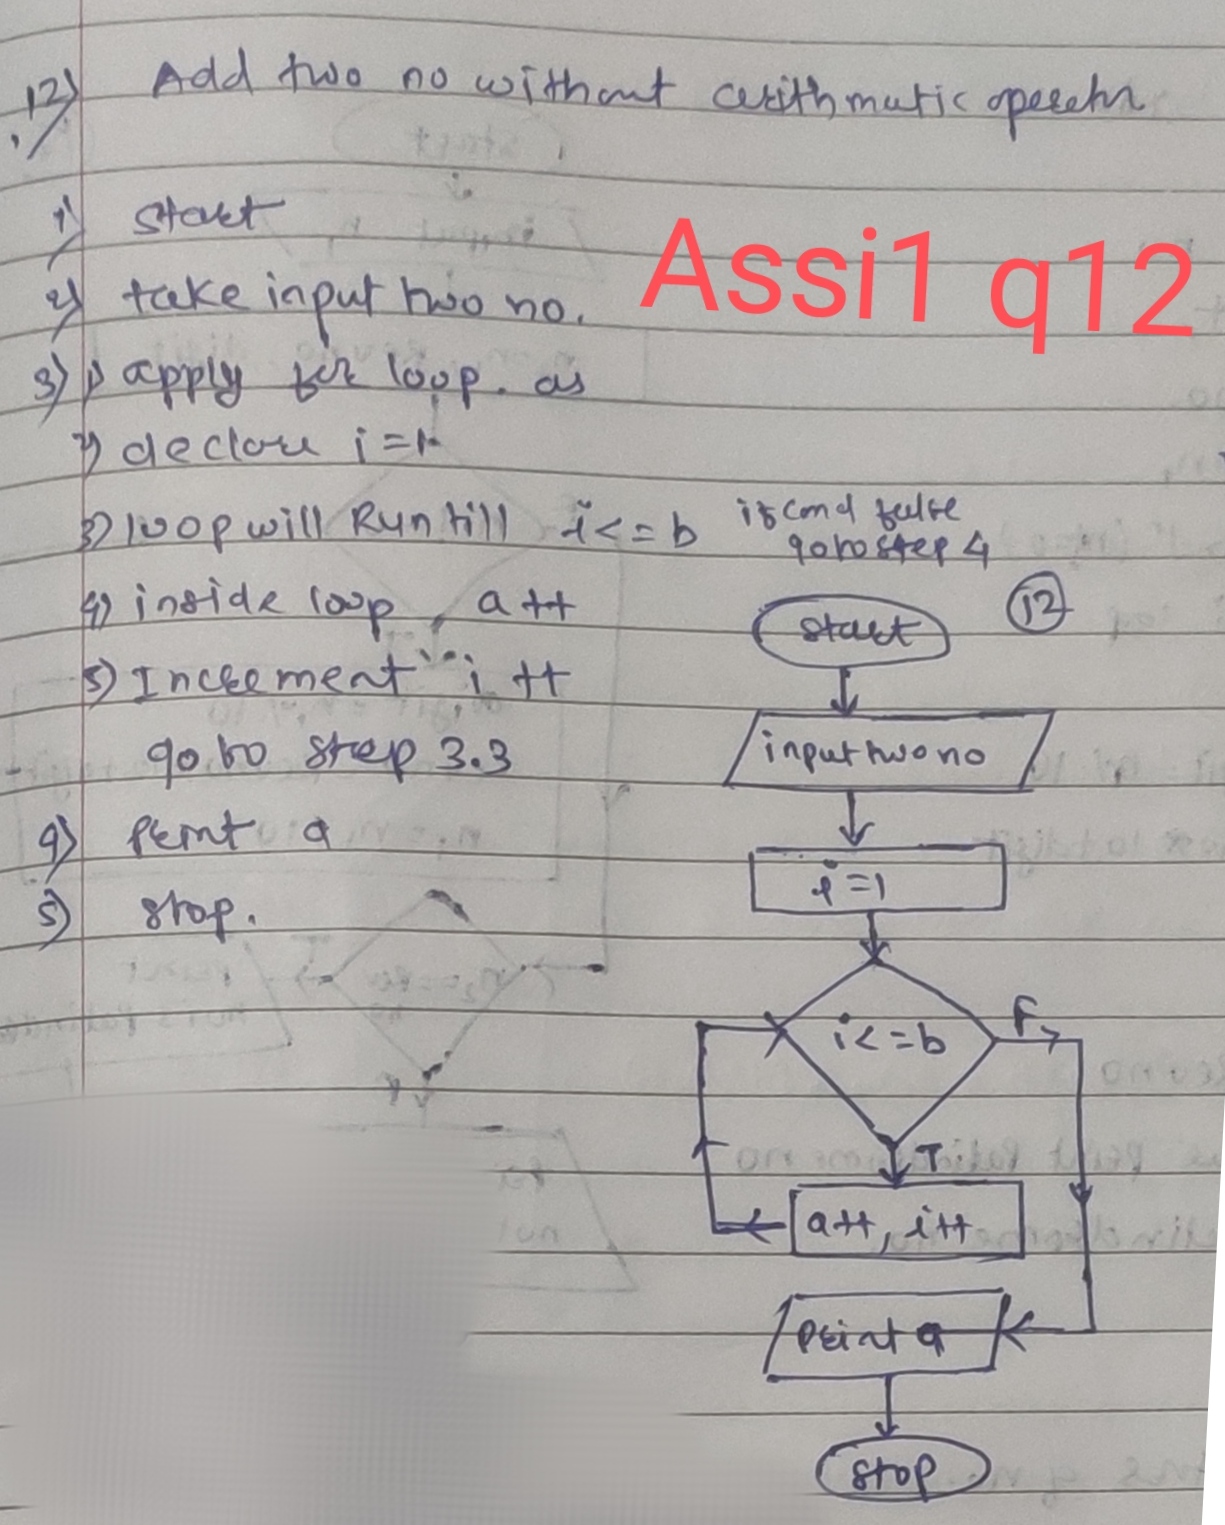 12)
Add two no without arithmatic operatr
1) start
2) take input two no.
Assi1 q12
3) 1) apply for loop. as
2) declare i=1
3) loop will Run till i<=b if cond false
goto step 4
4) inside loop, a++
5) Increment i++
go to step 3.3
4) Print a
5) stop.
12
start
input two no
i=1
i<=b
F
T
a++, i++
Print a
stop